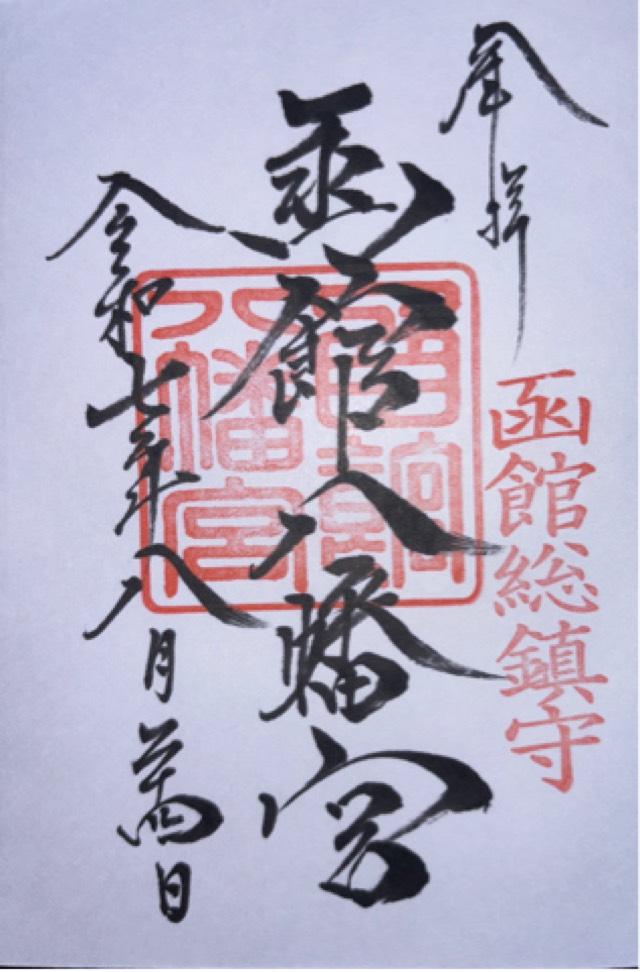 奉拝
函館総鎮守
函館八幡宮
八幡宮
令和七年八月廿四日